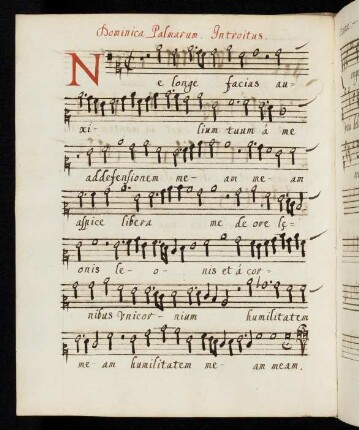 Dominica Palmarum. Introitus.
Ne longe facias au-
xi- lium tuum à me
ad defensionem me- am me- am
aspice libera me de ore lę-
onis le- o- nis et à cor-
nibus Vnicor- nium humilitatem
me- am humilitatem me- am meam.